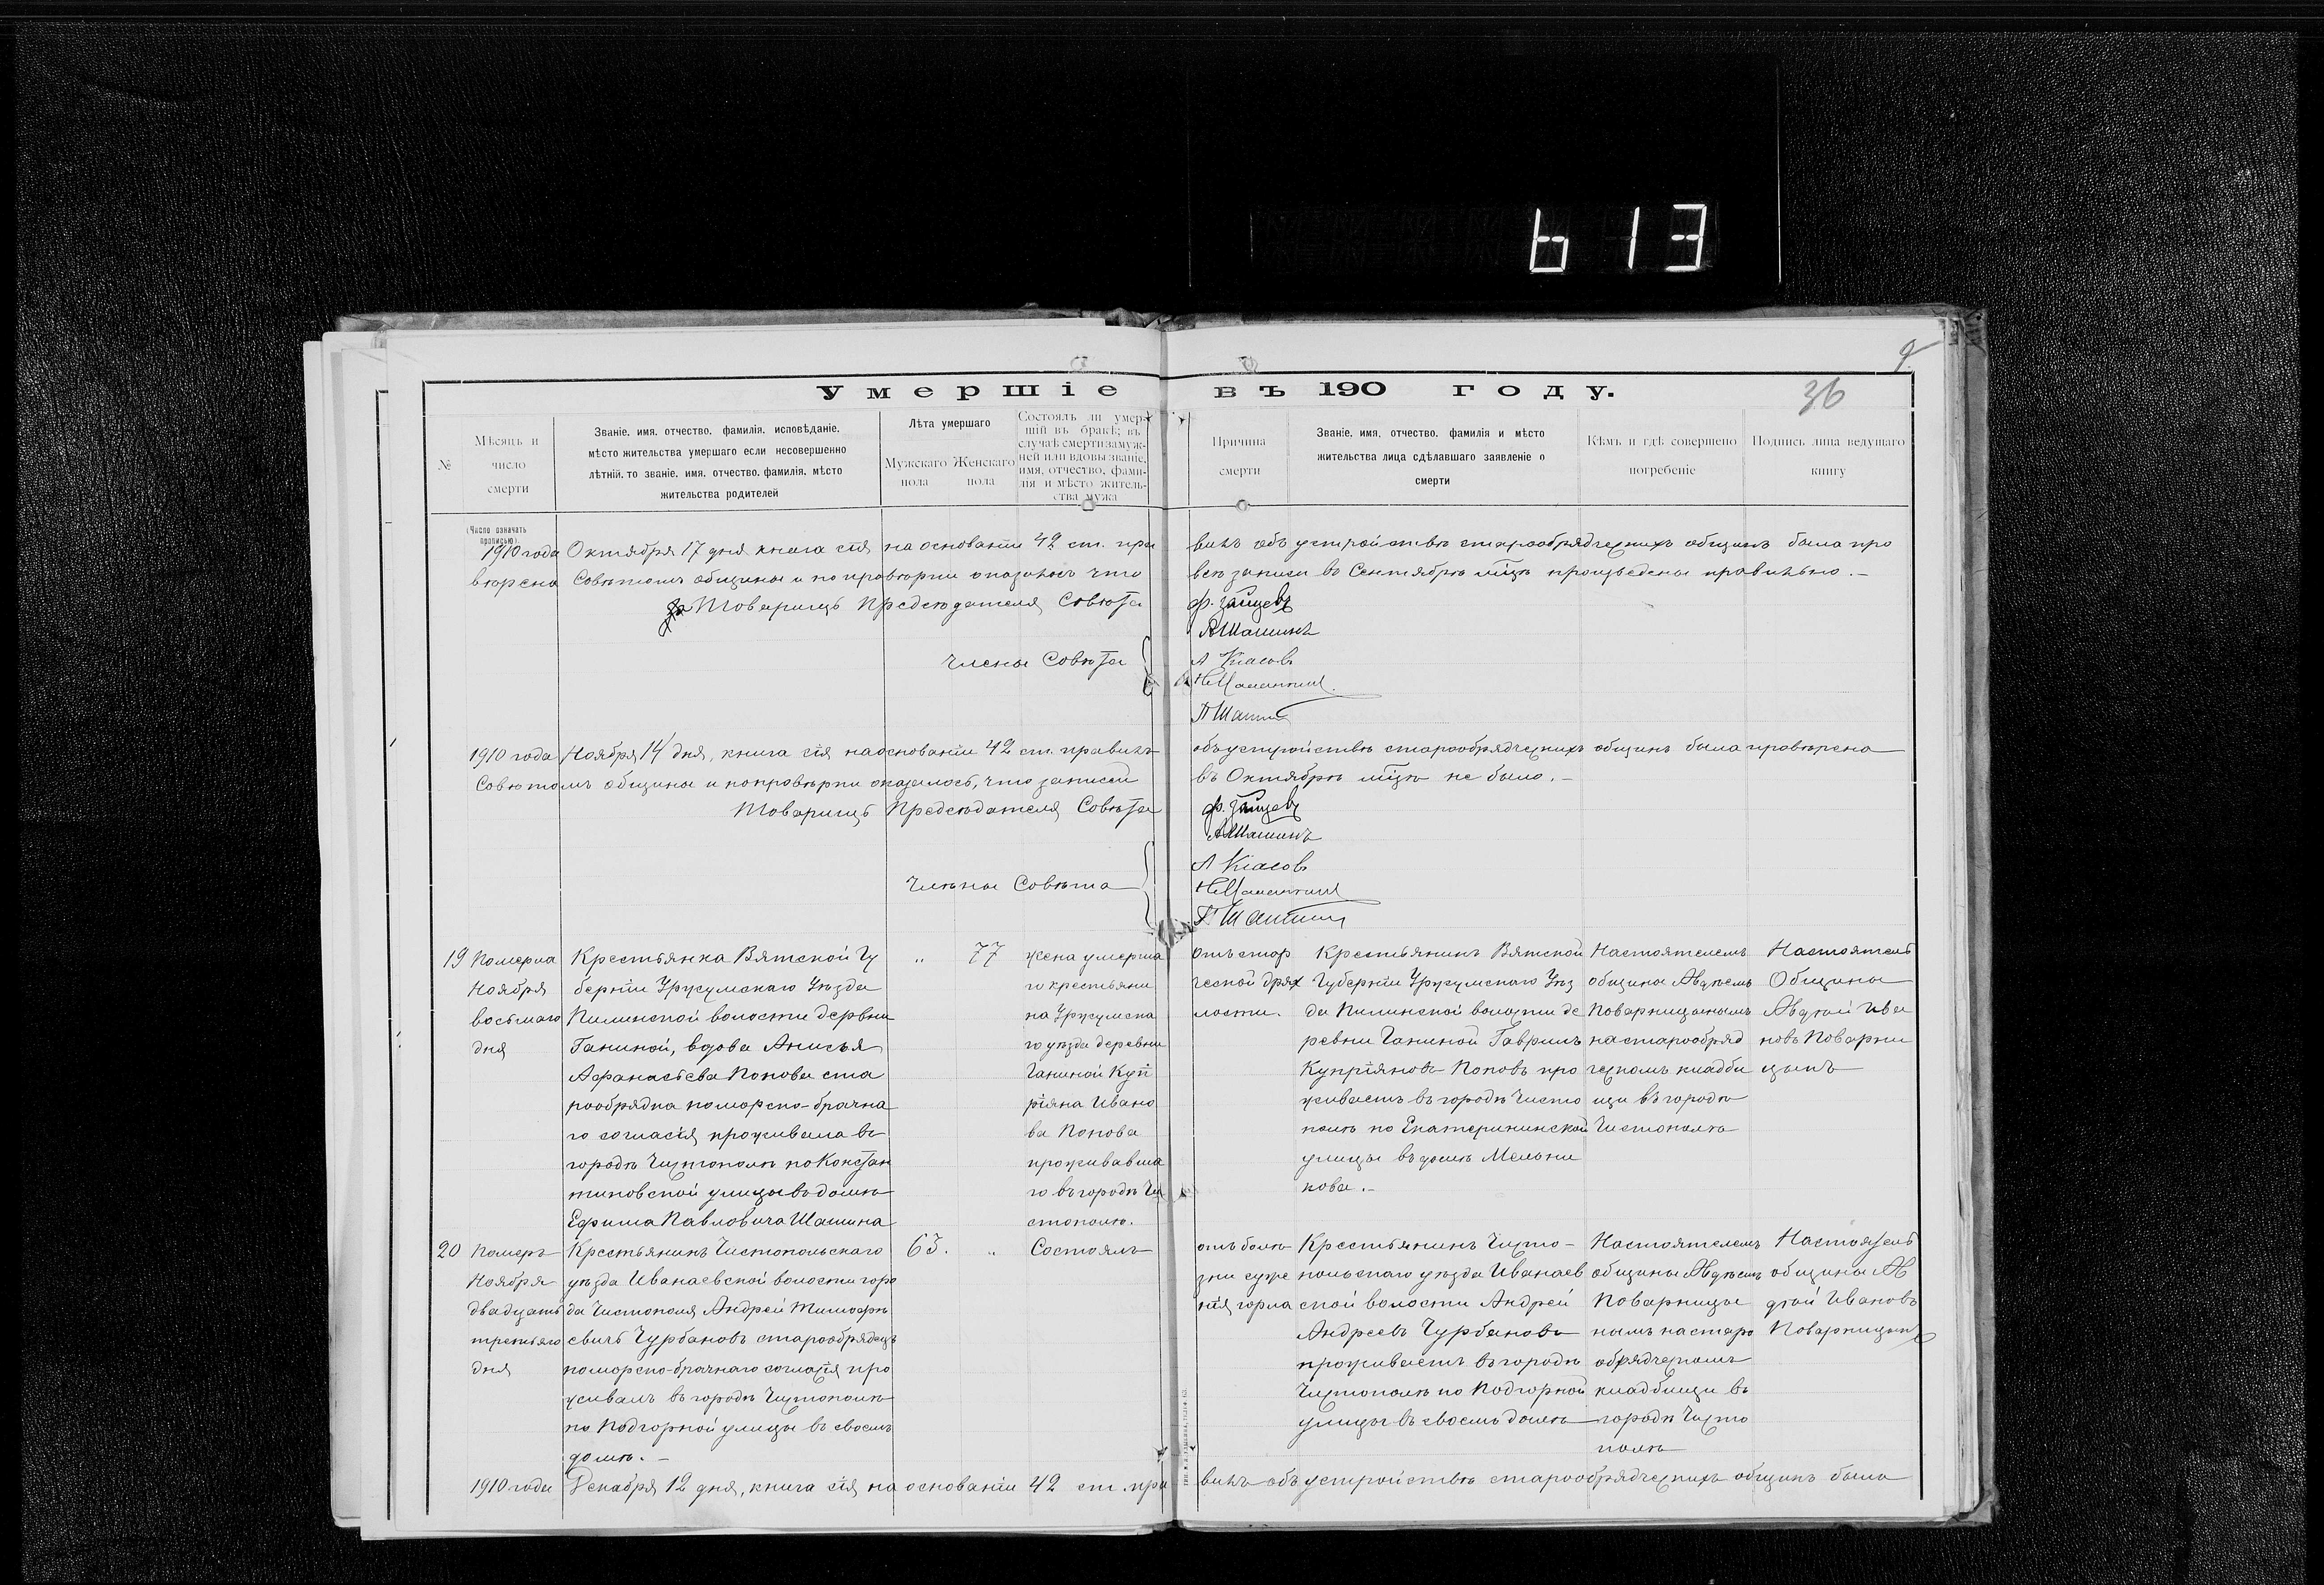 613
9
36
Умершіе въ 190 году.
№
Мѣсяцъ и
число
смерти
(Число означать
прописью).
Званіе, имя, отчество, фамилія, исповѣданіе,
мѣсто жительства умершаго если несовершенно
лѣтній, то званіе, имя, отчество, фамилія, мѣсто
жительства родителей
Лѣта умершаго
Мужскаго
пола
Женскаго
пола
Состоялъ ли умер-
шій въ бракѣ; въ
случаѣ смерти замуж-
ней или вдовы званіе,
имя, отчество, фами-
лія и мѣсто житель-
ства мужа
Причина
смерти
Званіе, имя, отчество, фамилія и мѣсто
жительства лица сдѣлавшаго заявленіе о
смерти
Кѣмъ и гдѣ совершено
погребеніе
Подпись лица ведущаго
книгу
1910 года Октября 17 дня книга сія на основаніи 42 ст. пра
вилъ объ устройствѣ старообрядческихъ общинъ была про
вѣрена Совѣтомъ общины и по провѣрки оказалось что
всѣ записи въ Сентябрѣ мѣсяцѣ произведены правильно. –
За Товарищъ Предсѣдателя Совѣта Ф. Зайцевъ
А Шашинъ
Члены Совѣта А Кіасовъ
П Шашин
1910 года Ноября 14 дня, книга сія на основаніи 42 ст. правилъ
объ устройствѣ старообрядческихъ общинъ была провѣрена
Совѣтомъ общины и по провѣрки оказалось, что записей
въ Октябрѣ мѣсяцѣ не было. –
Товарищъ Предсѣдателя Совѣта Ф. Зайцевъ
А Шашинъ
Члѣны Совѣта А Кіасовъ
П Шашин
19
Померла
Ноября
восьмаго
дня
Крестьянка Вятской Гу
берніи Уржумскаго Уѣзда
Пилинской волости дервни
Ганиной, вдова Анисья
Афанасьева Попова ста
рообрядка поморско-брачна
го согласія проживала въ
городѣ Чистополѣ по Констан
тиновской улицы въ домѣ
Ефима Павловича Шашина
„ 77
жена умерша
го крестьяни
на Уржумска
го уѣзда деревни
Ганиной Куп
ріяна Ивано
ва Попова
проживавша
го въ городѣ Чи
стополѣ.
Отъ стар
ческой дрях
лости.
Крестьянинъ Вятской
Губерніи Уржумскаго Уѣз
да Пилинской волости де
ревни Ганиной Гаврилъ
Купріяновъ Поповъ про
живаетъ въ городѣ Чисто
полѣ по Екатерининской
улицы въ домѣ Мельни
кова. –
Настоятелемъ
общины Авдѣемъ
Поварницынымъ
на старообряд
ческомъ кладби
щи въ городѣ
Чистополѣ
Настоятель
Общины
Авдѣй Ива
новъ Поварни
цынъ
20
Померъ
Ноября
двадцать
третьяго
дня
Крестьянинъ Чистопольскаго
уѣзда Иванаевской волости горо
да Чистополя Андрей Тимофѣ
евичъ Чурбановъ старообрядецъ
поморско-брачнаго согласія про
живалъ въ городѣ Чистополѣ
по Подгорной улицы въ своемъ
домѣ. –
63. „
Состоялъ
отъ болѣ
зни суже
нія горла
Крестьянинъ Чисто-
польскаго уѣзда Иванаев
ской волости Андрей
Андреевъ Чурбановъ
проживаетъ въ городѣ
Чистополѣ по Подгорной
улицы въ своемъ домѣ
Настоятелемъ
общины Авдѣемъ
Поварницы
нымъ на старо
обрядческомъ
кладбищи въ
городѣ Чисто
полѣ
Настоятель
общины Ав
дѣй Ивановъ
Поварницынъ
1910 года Декабря 12 дня, книга сія на основаніи 42 ст. пра
вилъ объ устройствѣ старообрядческихъ общинъ была